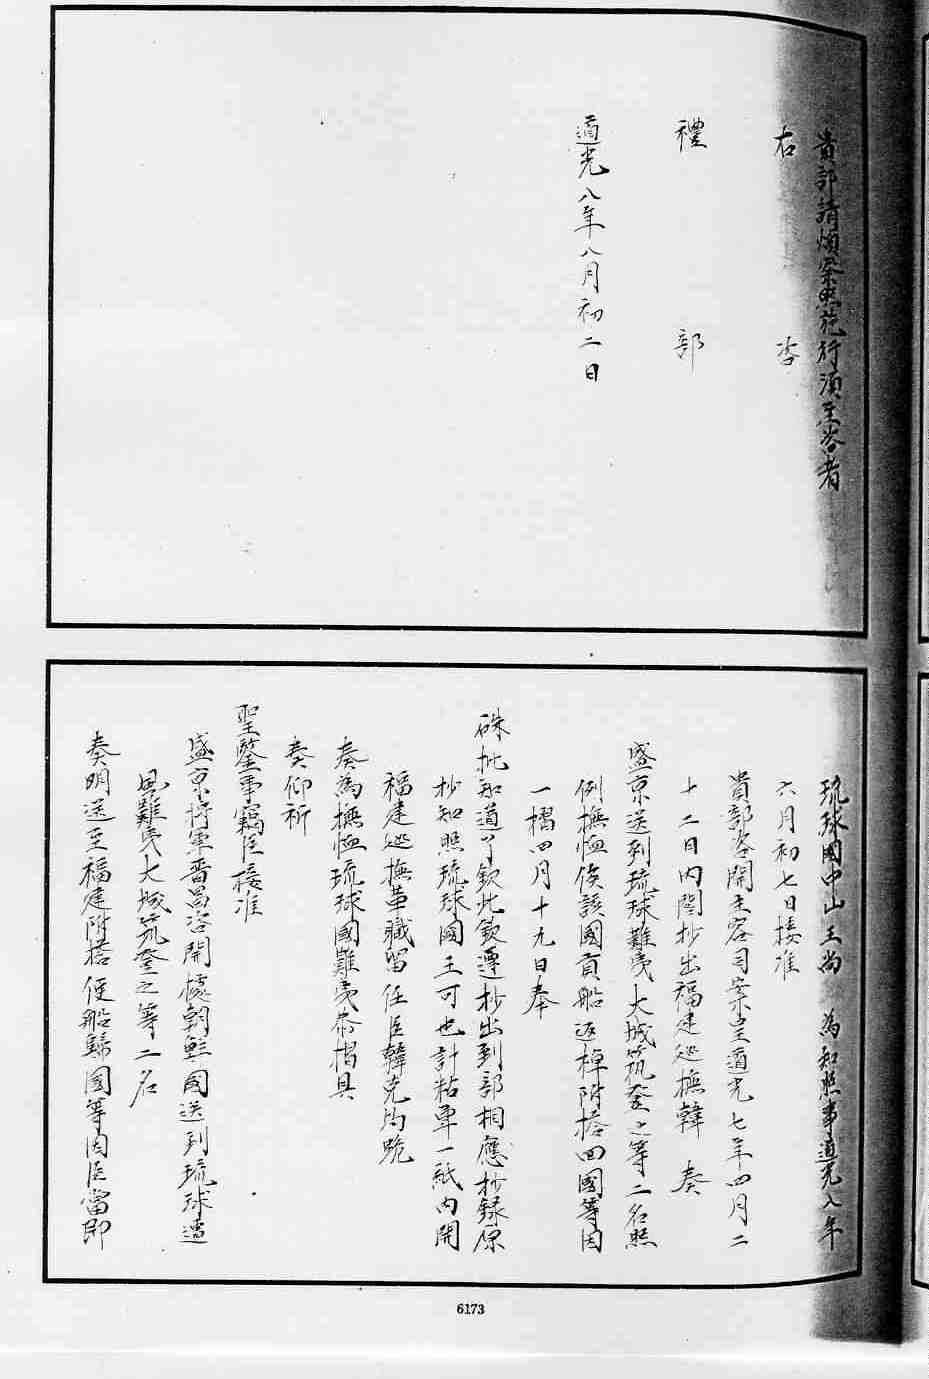 貴部請煩察照施行須至咨者
右 咨
禮 部
道光八年八月初二日
琉球國中山王尚 為知照事道光八年
六月初七日接准
貴部咨開主客司案呈道光七年四月二
十二日內閣抄出福建巡撫韓 奏
盛京送到琉球難夷大城筑登之等二名照
例撫恤俟該國貢船返棹附搭回國等因
一摺四月十九日奉
硃批知道了欽此欽遵抄出到部相應抄録原
抄知照琉球國王可也計粘單一紙內開
福建巡撫革職留任臣韓克均跪
奏為撫恤琉球國難夷恭摺具
奏仰祈
聖鑒事竊臣接准
盛京將軍晋昌咨開據朝鮮國送到琉球遭
風難夷大城筑登之等二名
奏明送至福建附搭便船歸國等因臣當即
6173